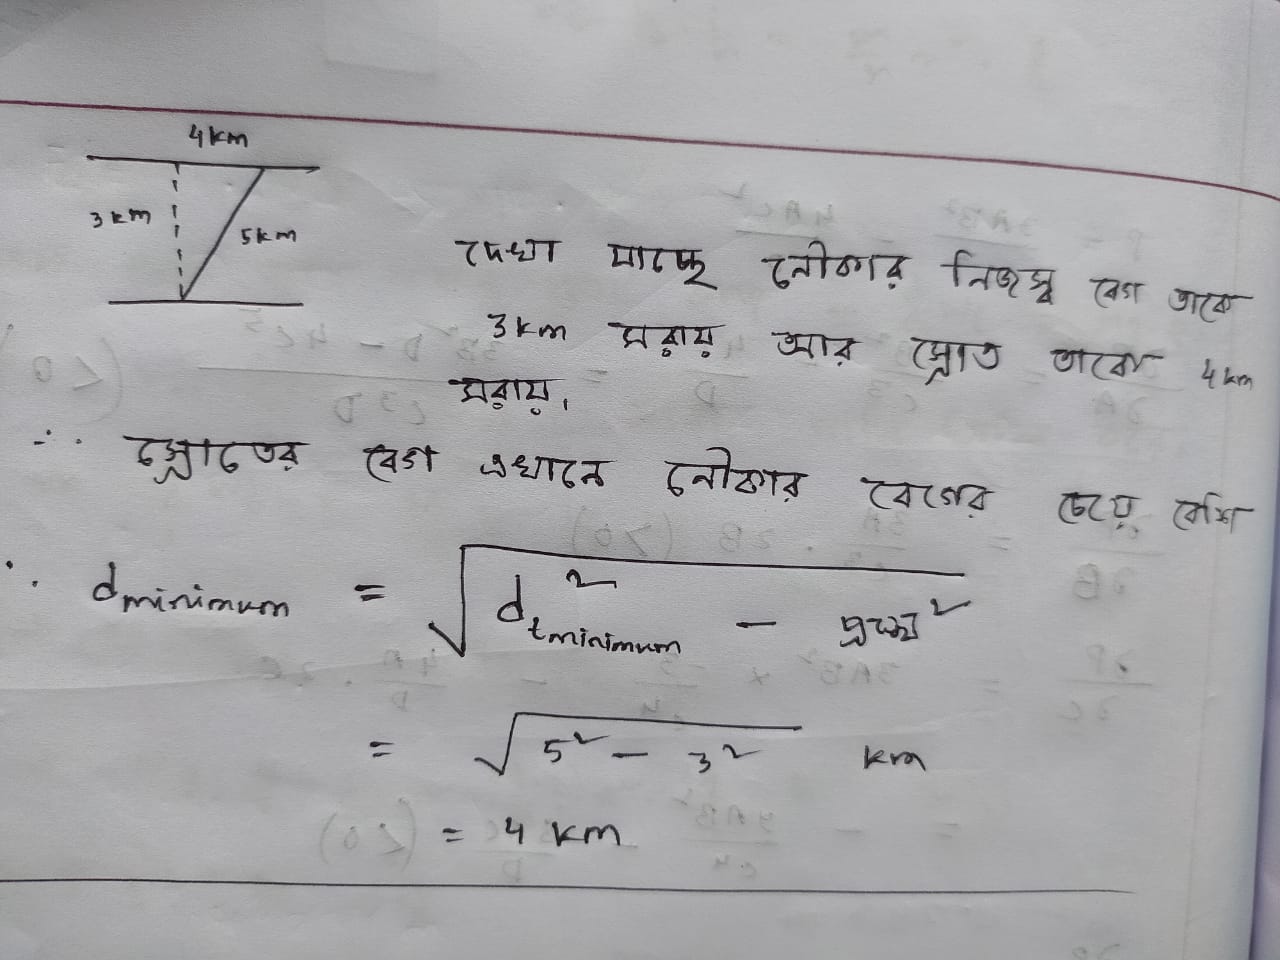 4 km
3 km
5 km
দেখা যাচ্ছে নৌকার নিজস্ব বেগ তাকে
3 km সরায় আর স্রোত তাকে 4 km
সরায়।
∴ স্রোতের বেগ এখানে নৌকার বেগের চেয়ে বেশি
∴ dminimum = √(d²tminimum − প্রস্থ²)
= √(5² − 3²) km
= 4 km